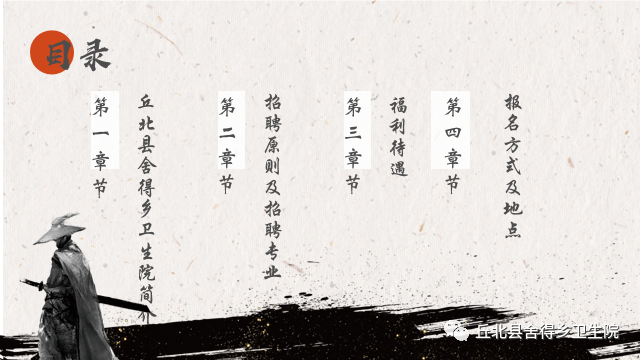 目录
第一章节
丘北县舍得乡卫生院简介
第二章节
招聘原则及招聘专业
第三章节
福利待遇
第四章节
报名方式及地点
丘北县舍得乡卫生院